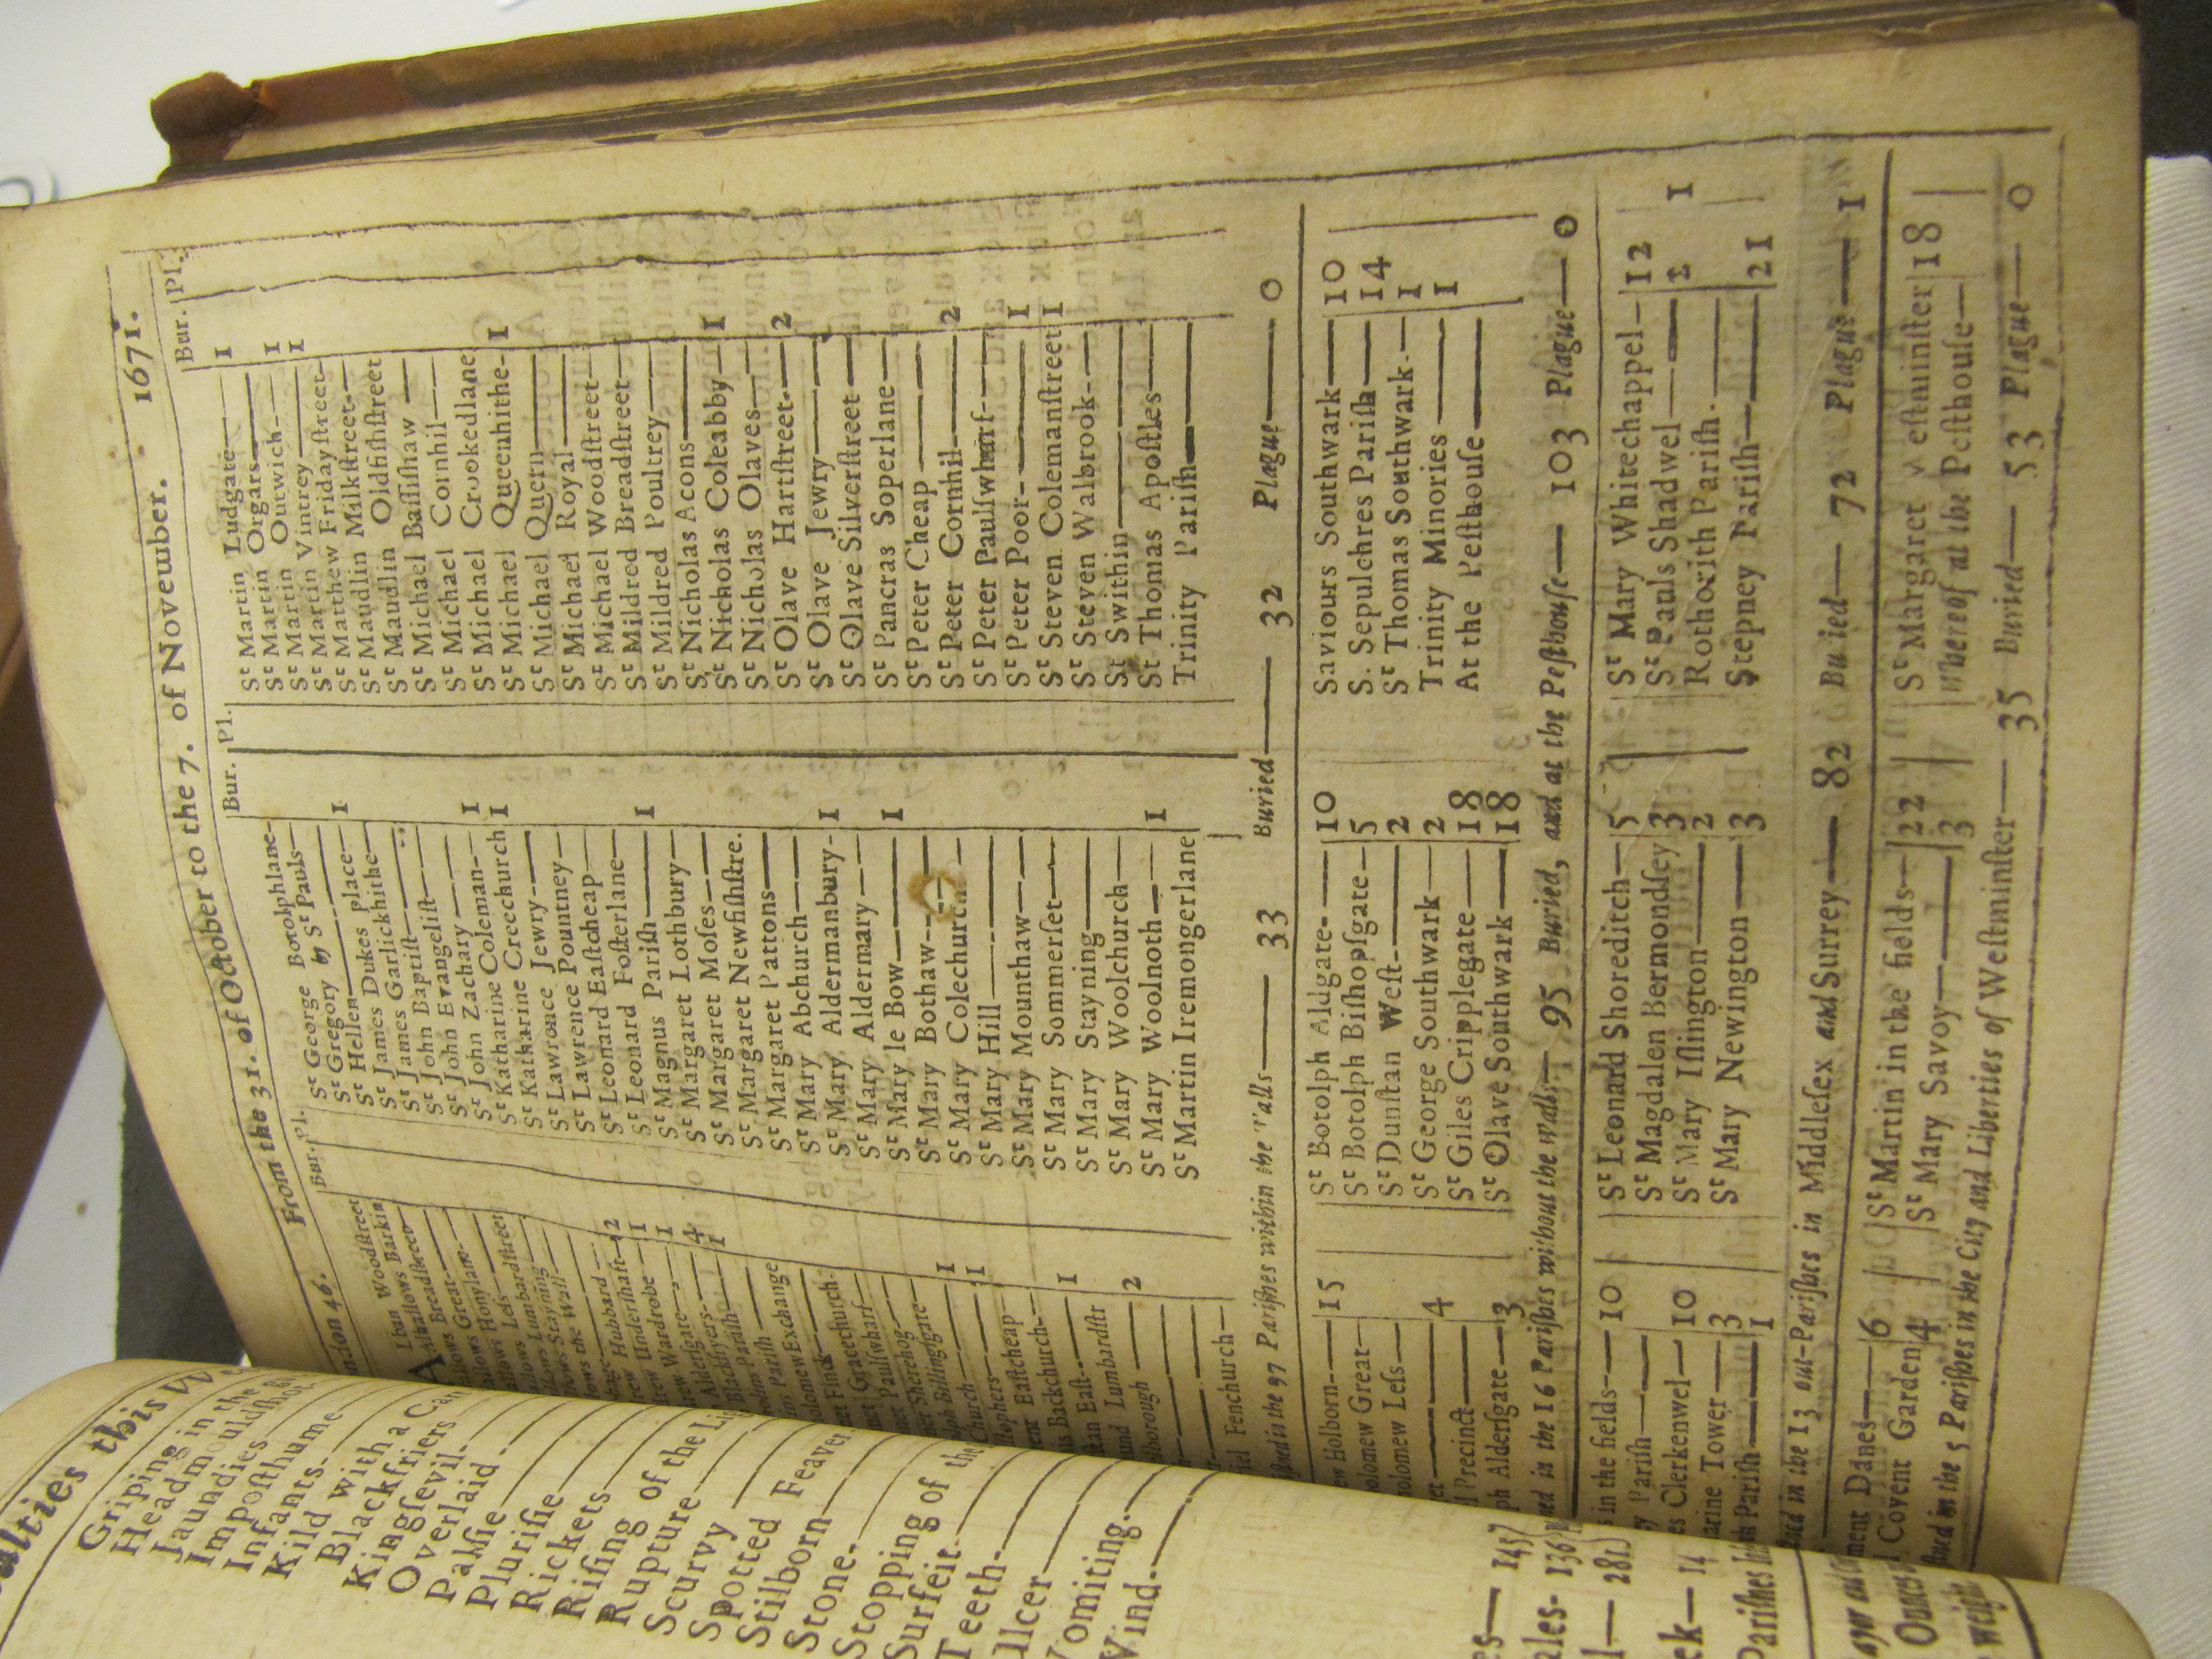 London 46. From the 31. of October to the 7. of November. 1671.
Bur. Pl.
Woodstreet
Allhallows Barkin
Breadstreet
Great
Honylane
Less
Lumbardstreet
Stayning
the Wall
Hubbard 2
Undershaft 1
Wardrobe 1
4
1
Parish
Exchange
Finck
Gracechurch
Paulswharf
Sherehog
Billingsgate
Church 1
1
Eastcheap
Backchurch
East 1
Lumbardstr
2
Fenchurch
Bur. Pl.
St George Botolphlane
St Gregory by St Pauls
St Hellen 1
St James Dukes place
St James Garlickhithe
St John Baptist
St John Evangelist
St John Zachary 1
St Katharine Coleman
St Katharine Creechurch 1
St Lawrence Jewry
St Lawrence Pountney
St Leonard Eastcheap
St Leonard Fosterlane
St Magnus Parish 1
St Margaret Lothbury
St Margaret Moses
St Margaret Newfishstre.
St Margaret Pattons
St Mary Abchurch
St Mary Aldermanbury 1
St Mary Aldermary
St Mary le Bow 1
St Mary Bothaw
St Mary Colechurch
St Mary Hill
St Mary Mounthaw
St Mary Sommerset
St Mary Stayning
St Mary Woolchurch
St Mary Woolnoth 1
St Martin Iremongerlane
Bur. Pl.
St Martin Ludgate 1
St Martin Orgars
St Martin Outwich 1
St Martin Vintrey 1
St Matthew Fridaystreet
St Maudlin Milkstreet
St Maudlin Oldfishstreet
St Michael Bassishaw
St Michael Cornhil
St Michael Crookedlane
St Michael Queenhithe 1
St Michael Quern
St Michael Royal
St Michael Woodstreet
St Mildred Breadstreet
St Mildred Poultrey
St Nicholas Acons
St Nicholas Coleabby 1
St Nicholas Olaves
St Olave Hartstreet 2
St Olave Jewry
St Olave Silverstreet
St Pancras Soperlane
St Peter Cheap
St Peter Cornhil 2
St Peter Paulswharf
St Peter Poor 1
St Steven Colemanstreet 1
St Steven Walbrook
St Swithin
St Thomas Apostles
Trinity Parish
in the 97 Parishes within the walls 33 Buried 32 Plague 0
Holborn 15
Great
Less
4
Precinct
Aldersgate 3
St Botolph Aldgate 10
St Botolph Bishopsgate 5
St Dunstan West 2
St George Southwark 2
St Giles Cripplegate 18
St Olave Southwark 18
Saviours Southwark 10
S. Sepulchres Parish 14
St Thomas Southwark 1
Trinity Minories 1
At the Pesthouse
in the 16 Parishes without the walls 95 Buried, and at the Pesthouse 103 Plague 0
in the fields 10
Parish
Clerkenwel 10
Tower 3
Parish 1
St Leonard Shoreditch 5
St Magdalen Bermondsey 3
St Mary Islington 2
St Mary Newington 3
St Mary Whitechappel 12
St Pauls Shadwel 2 1
Rothorith Parish
Stepney Parish 21
in the 13 out-Parishes in Middlesex and Surrey 82 Buried 72 Plague 1
Danes 6
Covent Garden 4
St Martin in the fields 22
St Mary Savoy 3
St Margaret Westminster 18
whereof at the Pesthouse
in the 5 Parishes in the City and Liberties of Westminster 35 Buried 53 Plague 0
this
Griping in the
Headmouldshot
Jaundies
Imposthume
Infants
Kild with a
Blackfriers
Kingsevil
Overlaid
Palsie
Plurisie
Rickets
Rising of the
Rupture
Scurvy
Spotted Feaver
Stilborn
Stone
Stopping of the
Surfeit
Teeth
Ulcer
Vomiting
Wind
145
136
281
14
Parishes